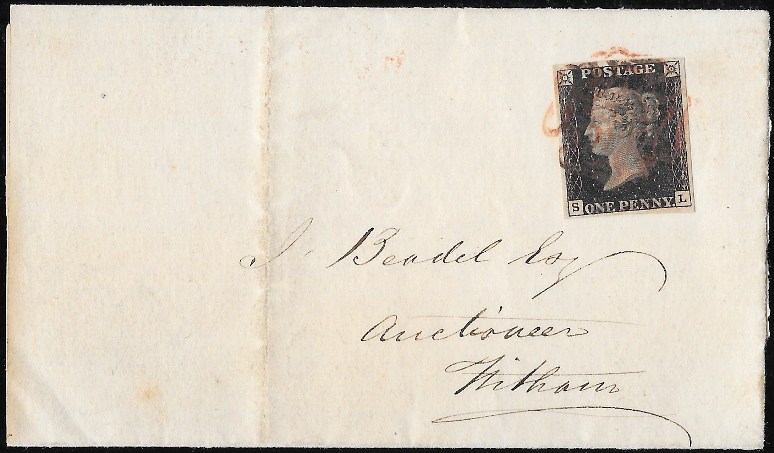 POSTAGE
S ONE PENNY L
J. Beadel Esq
Auctioneer
Witham